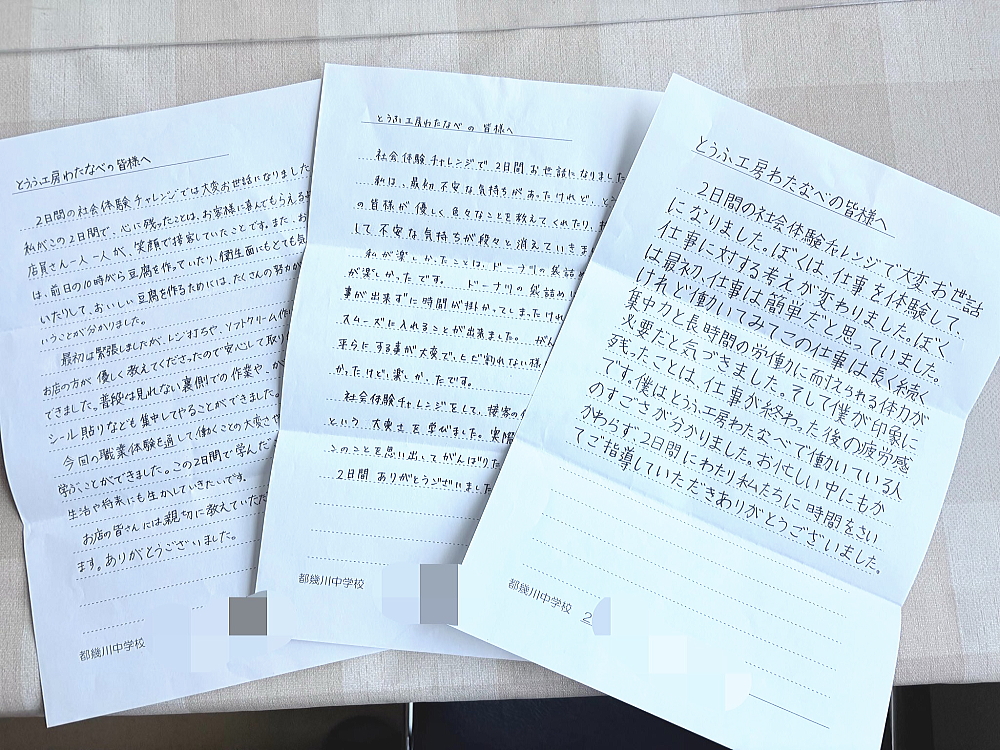 とうふ工房わたなべの皆様へ
2日間の社会体験チャレンジでは大変お世話になりました
私がこの2日間で、心に残ったことは、お客様に喜んでもらえる
店員さん一人一人が、笑顔で接客していたことです。また、お
は、前日の10時から豆腐を作っていたり、衛生面にもとても気
いたりして、おいしい豆腐を作るためには、たくさんの努力が
いうことが分かりました。
最初は緊張しましたが、レジ打ちや、ソフトクリーム作
お店の方が優しく教えてくださったので安心して取り
できました。普段は見れない裏側での作業や、か
シール貼りなども集中してやることができました。
今回の職業体験を通して、働くことの大変さや
学ぶことができました。この2日間で学んだ
生活や将来にも生かしていきたいです。
お店の皆さんには親切に教えていただ
ます。ありがとうございました。
都幾川中学校
とうふ工房わたなべの皆様へ
社会体験チャレンジで2日間お世話になりました
私は、最初不安な気持ちがあったけれど、と
の皆様が優しく色々なことを教えてくれたり、
して不安な気持ちが段々と消えていきま
私が楽しかったことは、ドーナツの袋詰め
が楽しかったです。ドーナツの袋詰め
事が出来ずに時間が掛かってしまったけれ
スムーズに入れることが出来ました。がん
平らにする事が大変で、ヒビ割れない様
かったけど、楽しかったです。
社会体験チャレンジをして、接客の
という大変さを学びました。実際
このことを思い出してがんばりた
2日間ありがとうございました
都幾川中学校
とうふ工房わたなべの皆様へ
2日間の社会体験チャレンジで大変お世話
になりました。ぼくは、仕事を体験して
仕事に対する考えが変わりました。ぼく
は最初、仕事は簡単だと思っていました。
けれど働いてみてこの仕事は長く続く
集中力と長時間の労働に耐えられる体力が
必要だと気づきました。そして僕が印象に
残ったことは、仕事が終わった後の疲労感
です。僕はとうふ工房わたなべで働いている人
のすごさが分かりました。お忙しい中にもか
かわらず2日間にわたり私たちに時間をさい
てご指導していただきありがとうございました。
都幾川中学校 2